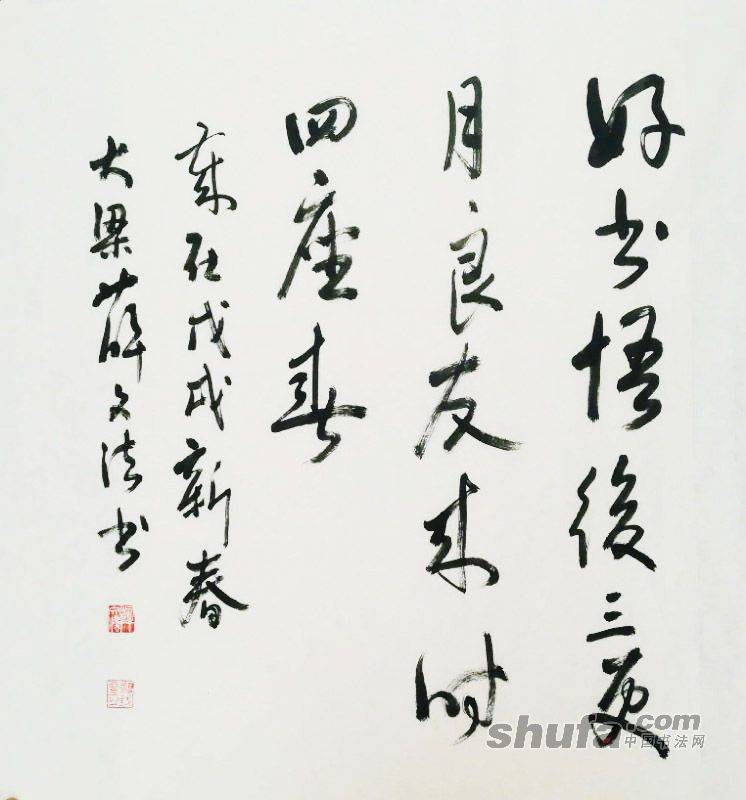 好书悟後三更
月良友来时
四座春
岁在戊戌新春
大梁薛文法书
shufa.com
中国书法网